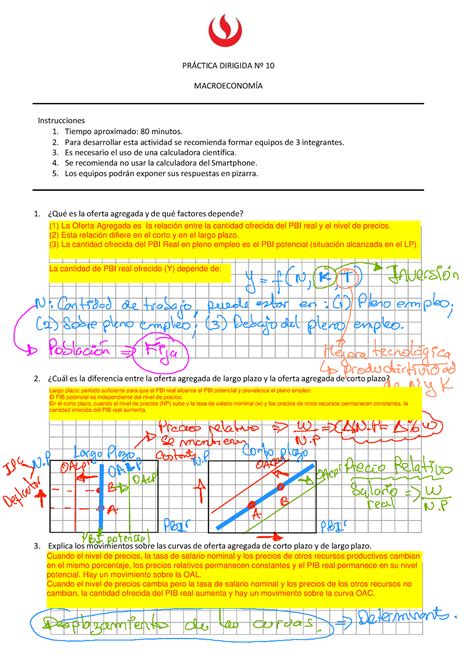 PRÁCTICA DIRIGIDA Nº 10
MACROECONOMÍA
Instrucciones
1. Tiempo aproximado: 80 minutos.
2. Para desarrollar esta actividad se recomienda formar equipos de 3 integrantes.
3. Es necesario el uso de una calculadora científica.
4. Se recomienda no usar la calculadora del Smartphone.
5. Los equipos podrán exponer sus respuestas en pizarra.
1. ¿Qué es la oferta agregada y de qué factores depende?
(1) La Oferta Agregada es la relación entre la cantidad ofrecida del PBI real y el nivel de precios.
(2) Esta relación difiere en el corto y en el largo plazo.
(3) La cantidad ofrecida del PBI Real en pleno empleo es el PBI potencial (situación alcanzada en el LP).
La cantidad de PBI real ofrecido (Y) depende de:
Y = f (N, K, T) Inversión
N: Cantidad de trabajo, puede estar en: (1) Pleno empleo;
(2) Sobre pleno empleo; (3) Debajo del pleno empleo.
Población ⇒ Fija
Mejora tecnológica
Productividad
de N y K
2. ¿Cuál es la diferencia entre la oferta agregada de largo plazo y la oferta agregada de corto plazo?
Largo plazo: periodo suficiente para que el PBI real alcance el PBI potencial y prevalezca el pleno empleo.
El PBI potencial es independiente del nivel de precios.
En el corto plazo, cuando el nivel de precios (NP) sube y la tasa de salario nominal (w) y los precios de otros recursos permanecen constantes, la
cantidad ofrecida del PBI real aumenta.
Precios relativo ⇒ W/N.P ⇒ (Δ%N.P = Δ%W)
Se mantienen
constants
IPC
Deflactor
N.P Largo Plazo
OALP
B
A
PBI
PBI potencial
N.P Corto plazo
B
A
PBI
Precio Relativo
Salario real ⇒ W/N.P
3. Explica los movimientos sobre las curvas de oferta agregada de corto plazo y de largo plazo.
Cuando el nivel de precios, la tasa de salario nominal y los precios de otros recursos productivos cambian
en el mismo porcentaje, los precios relativos permanecen constantes y el PIB real permanece en su nivel
potencial. Hay un movimiento sobre la OAL.
Cuando el nivel de precios cambia pero la tasa de salario nominal y los precios de los otros recursos no
cambian, la cantidad ofrecida del PIB real aumenta y hay un movimiento sobre la curva OAC.
Desplazamiento de las curvas ⇒ Determinants.